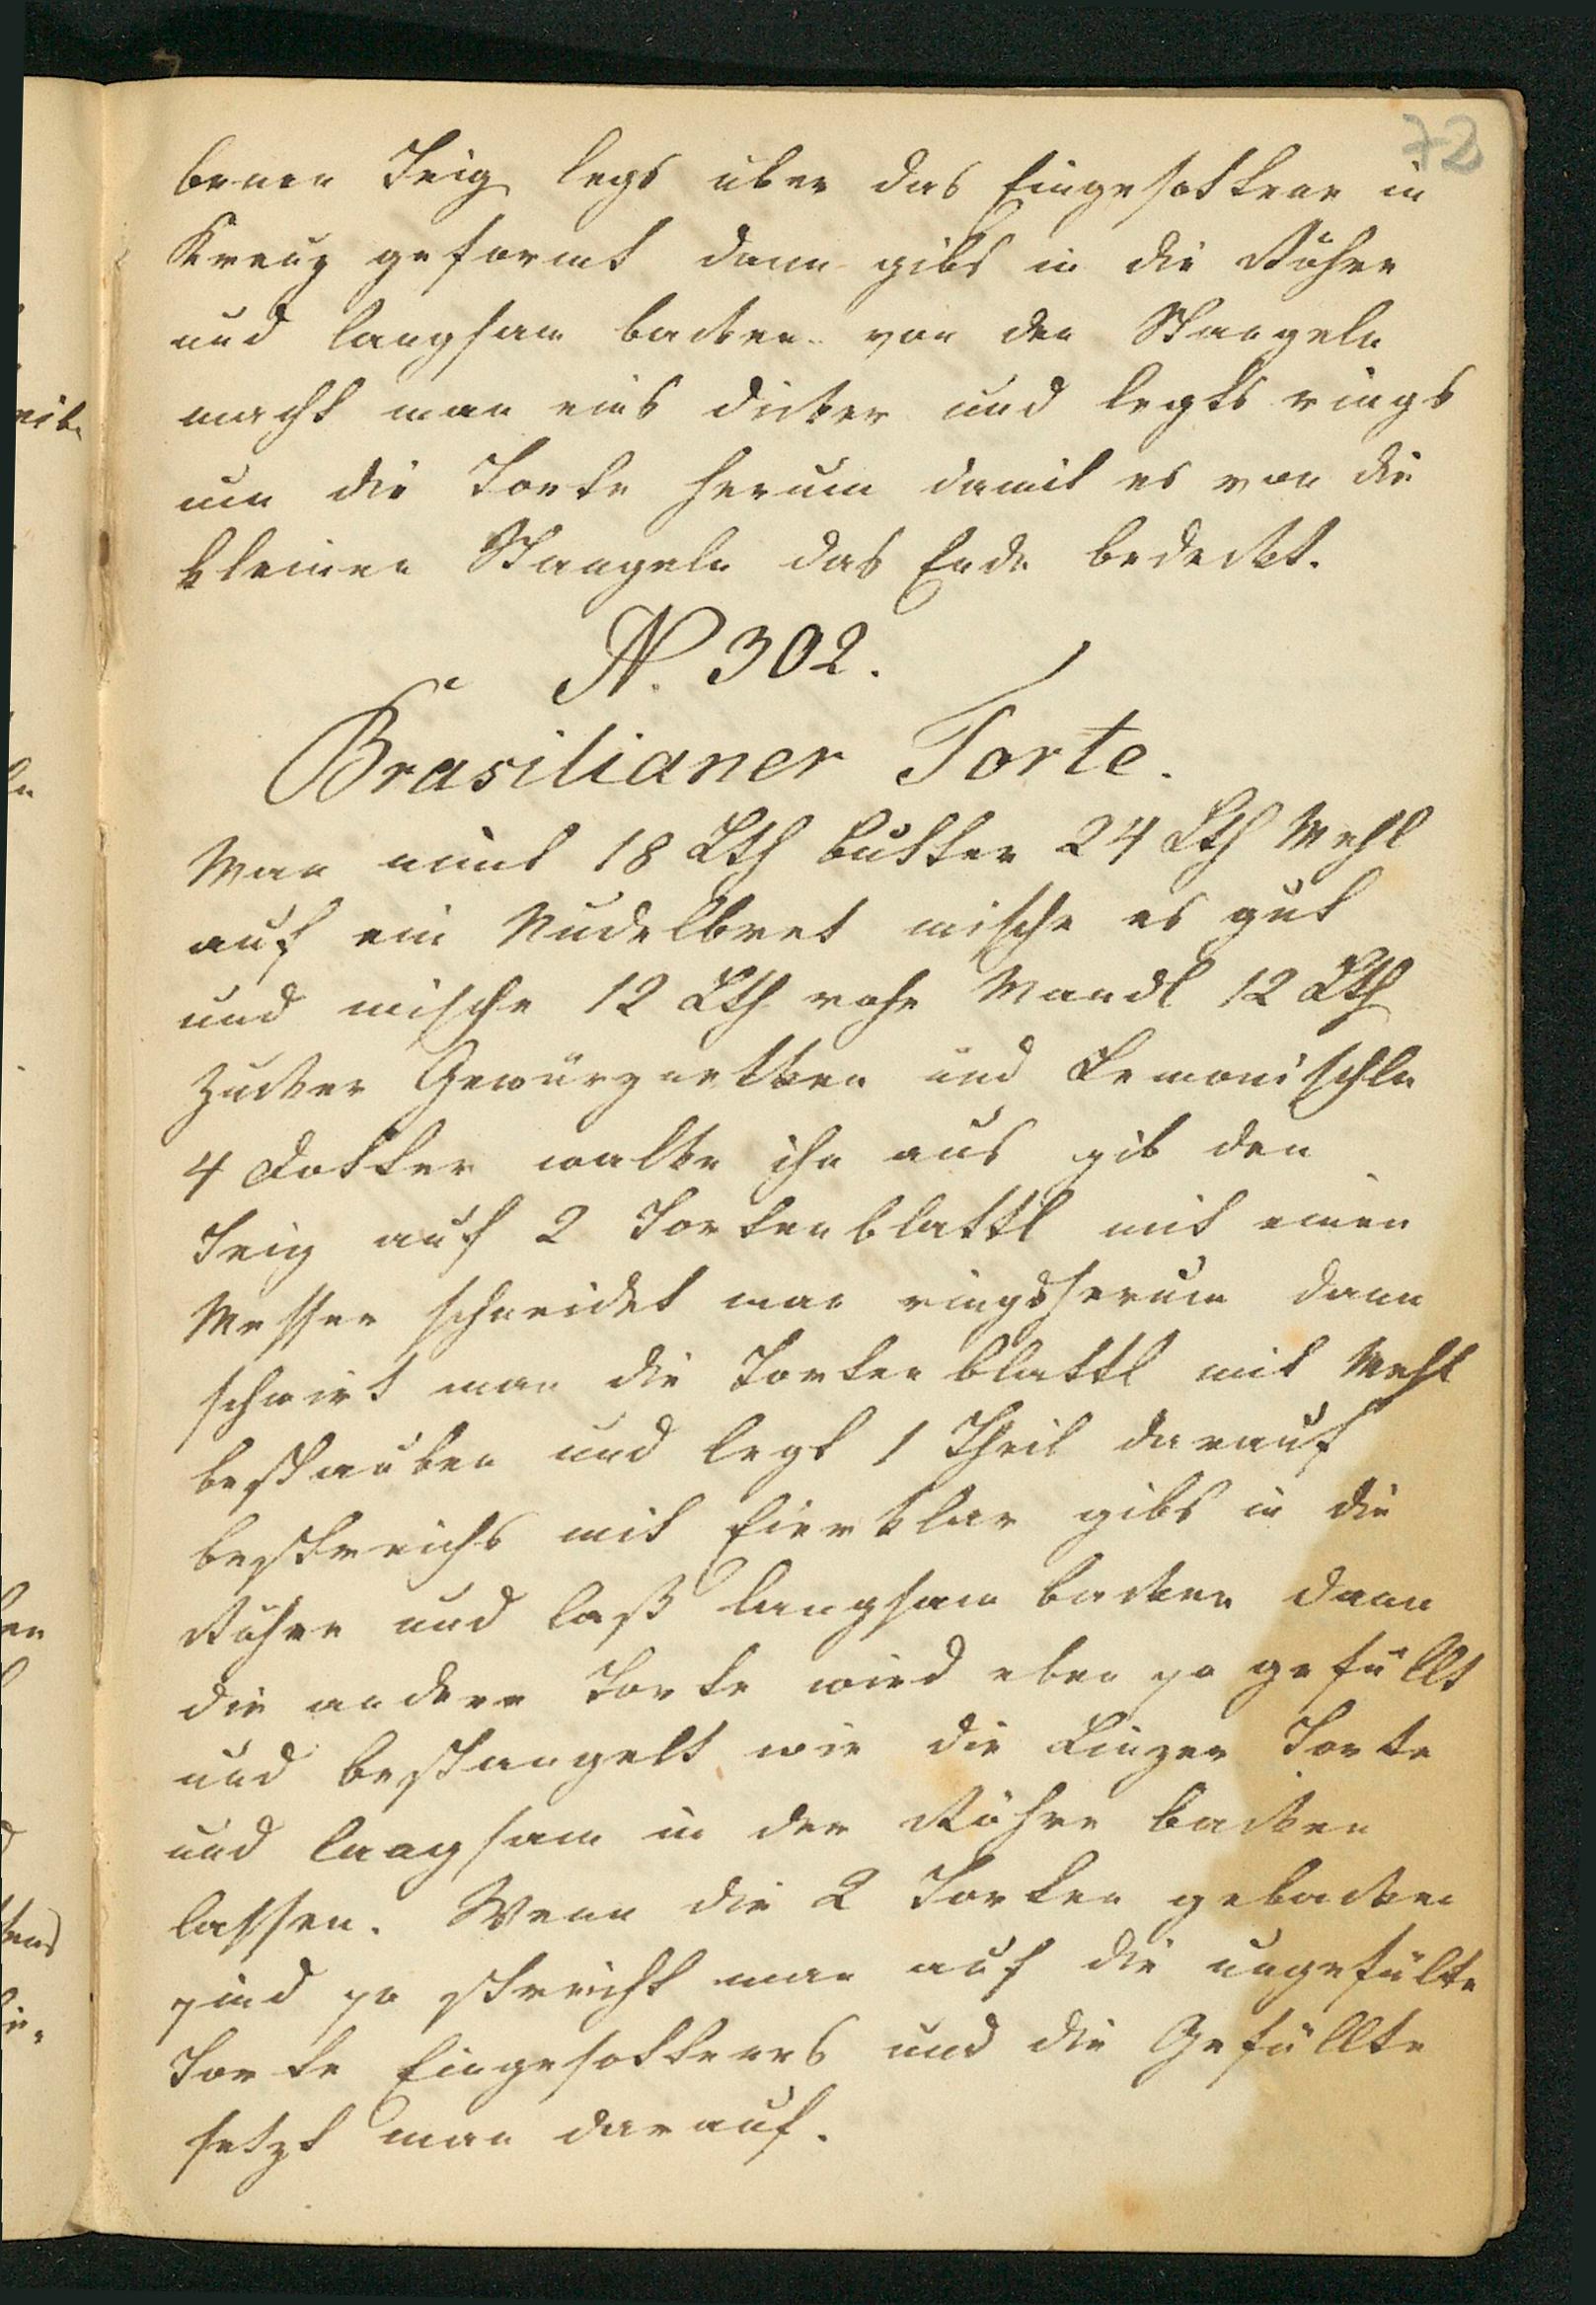 72
benen Teig legs uber das Eingesottene in
Kreuz geformt dann gibs in die Röhre
und langsam backen von den Stangeln
macht man eins dicker und legts rings
um die Torte herum damit es von die
kleinen Stangeln das Ende bedeckt.
N. 302.
Brasilianer Torte.
Man nimt 18 Lth Butter 24 Lth Mehl
auf ein Nudelbret mische es gut
und mische 12 Lth rohe Mandl 12 Lth
Zucker Gewürznelken und Lemonischln
4 Dotter walke ihn aus gib den
Teig auf 2 Tortenblattl mit einen
Messer schneidet man ringsherum dann
schmirt man die Tortenblattl mit Mehl
bestauben und legt 1 Theil darauf
bestreichs mit Eierklar gibs in die
Röhre und laß langsam backen dann
die andere Torte wird eben so gefüllt
und bestangelt wie die Linzer Torte
und langsam in der Röhre backen
lassen. Wenn die 2 Torten gebacken
sind so streicht man auf die ungefülte
Torte Eingesottenes und die Gefüllte
setzt man darauf.